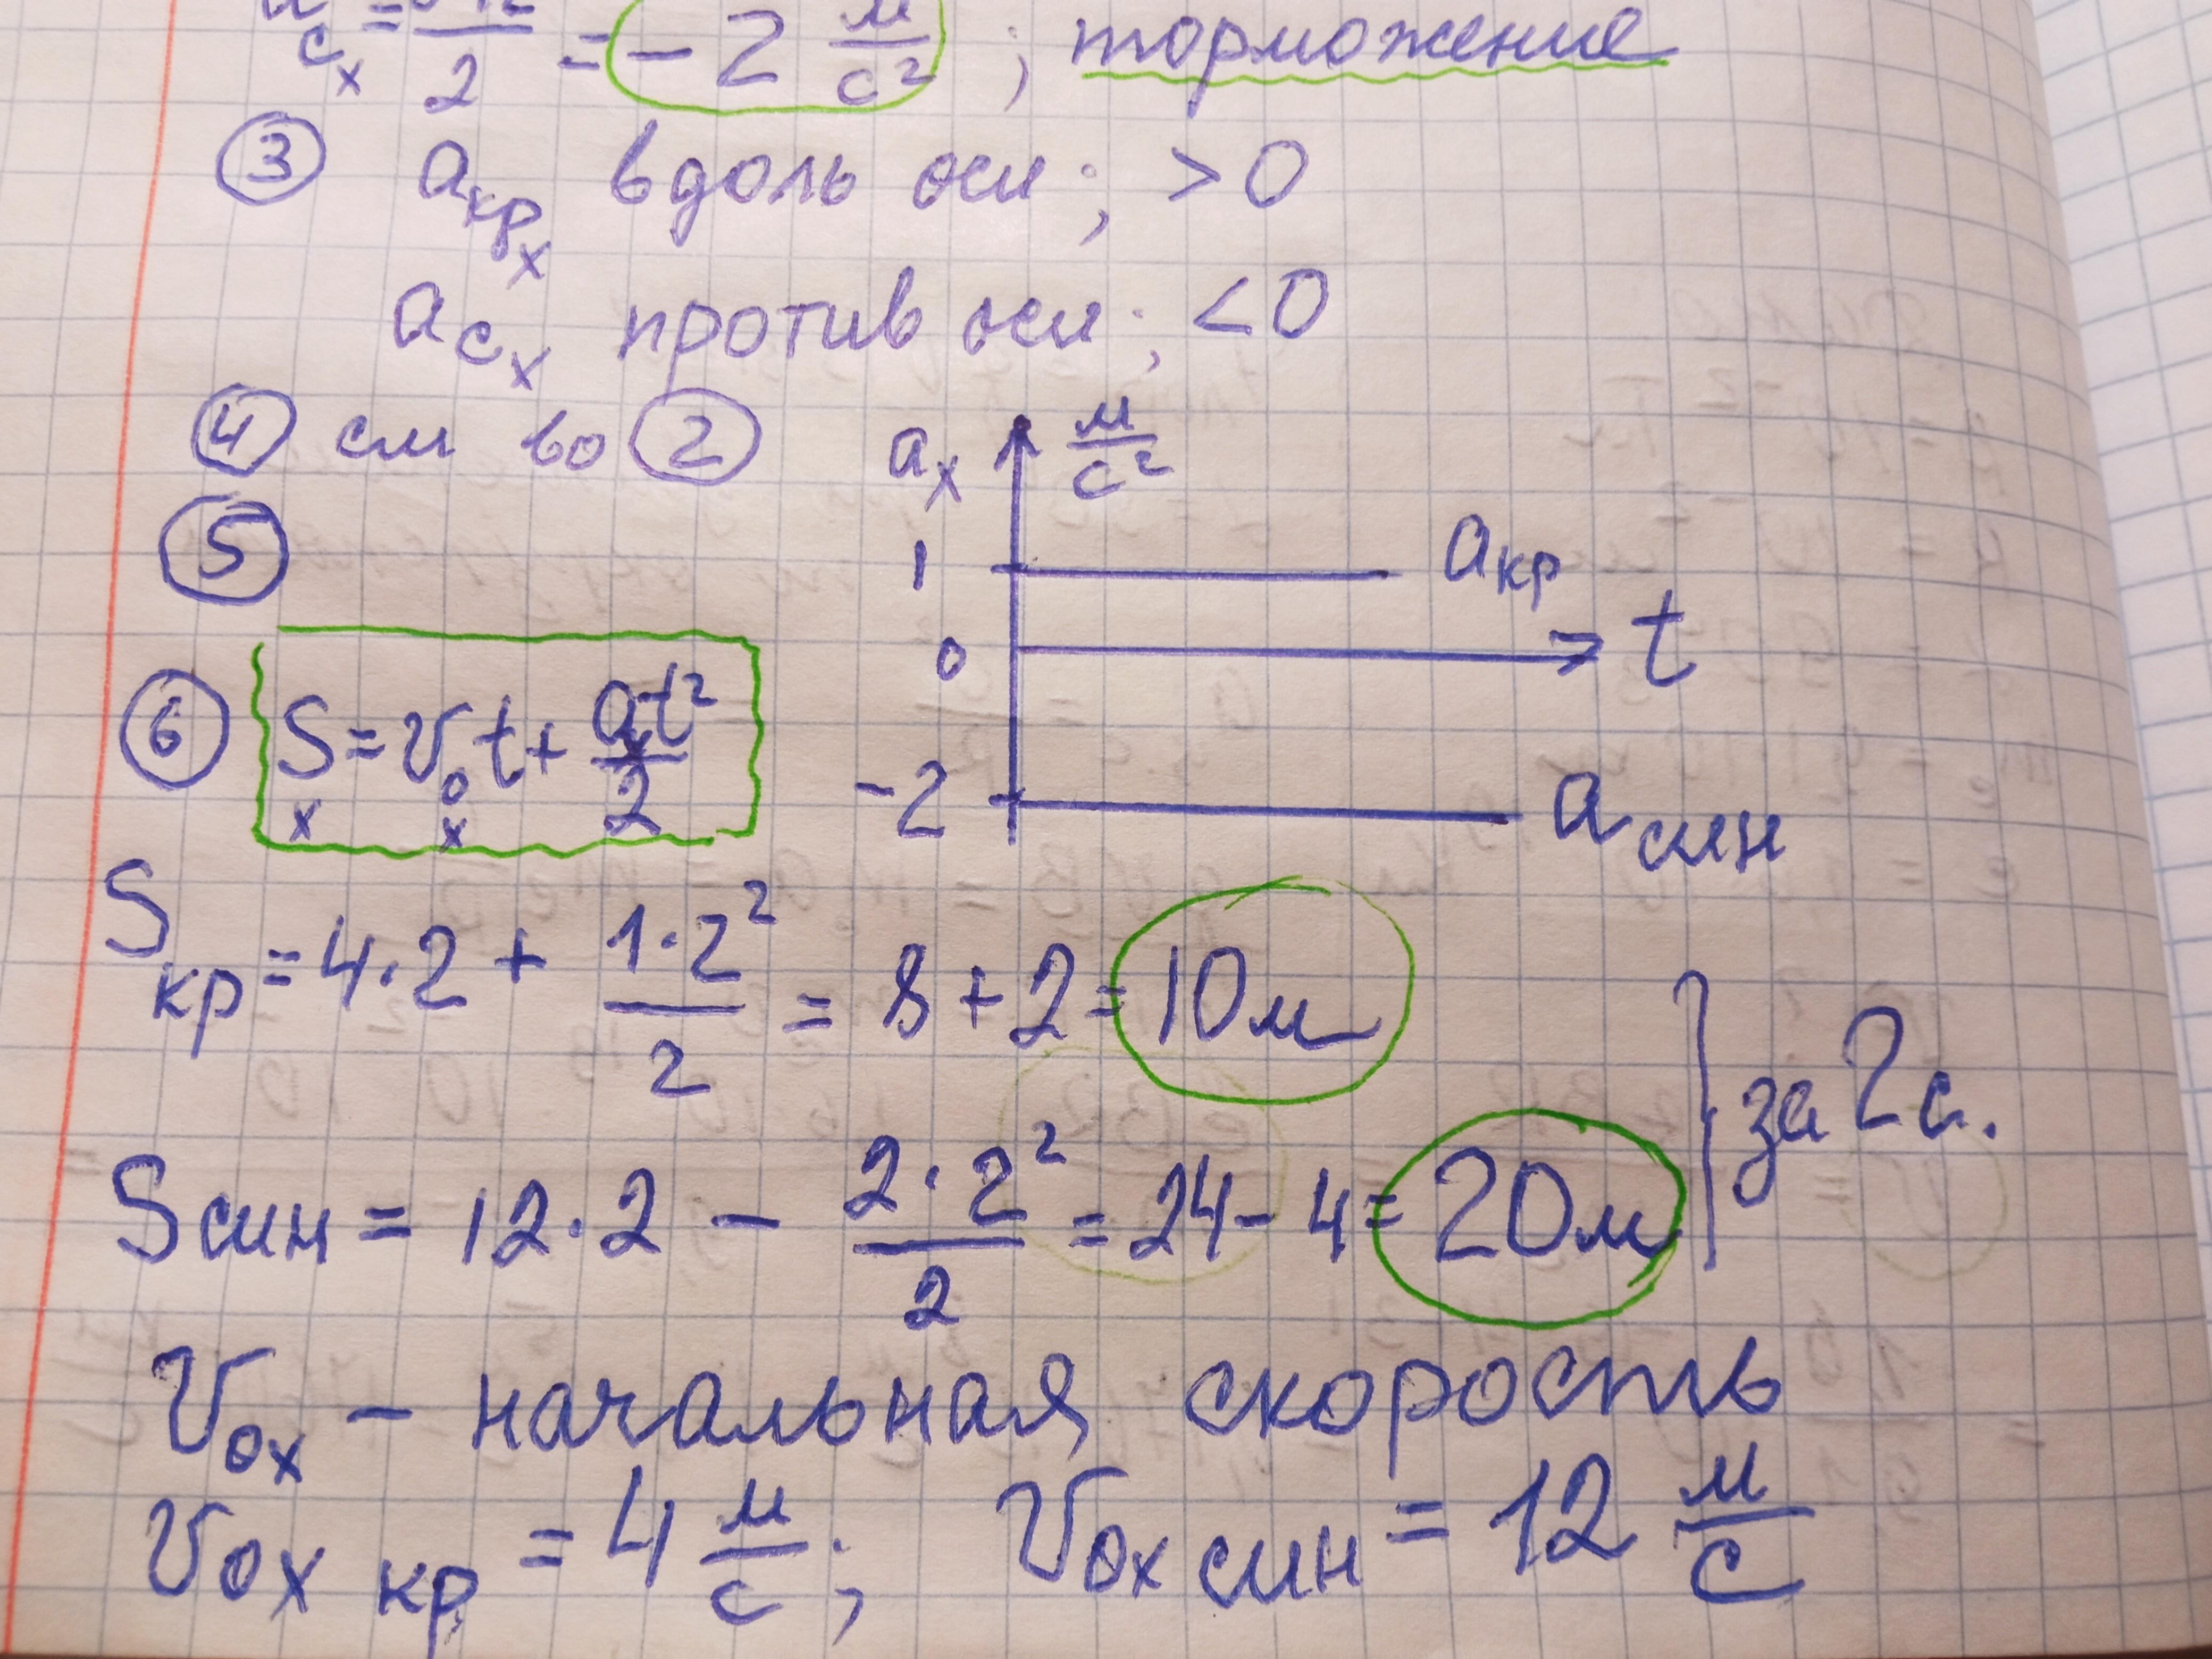 c_x = / 2 = -2 м/с² ; торможение
③ a_кр_x вдоль оси; >0
a_с_x против оси; <0
④ см во ②
a_x м/с²
⑤
1 a_кр
0 t
-2 a_син
⑥ S_x = v_0_x t + a_x t²/2
S_кр = 4·2 + 1·2²/2 = 8+2 = 10м
S син = 12·2 - 2·2²/2 = 24-4 = 20м
} за 2с.
V_0x - начальная скорость
V_0x кр = 4 м/с; V_0x син = 12 м/с